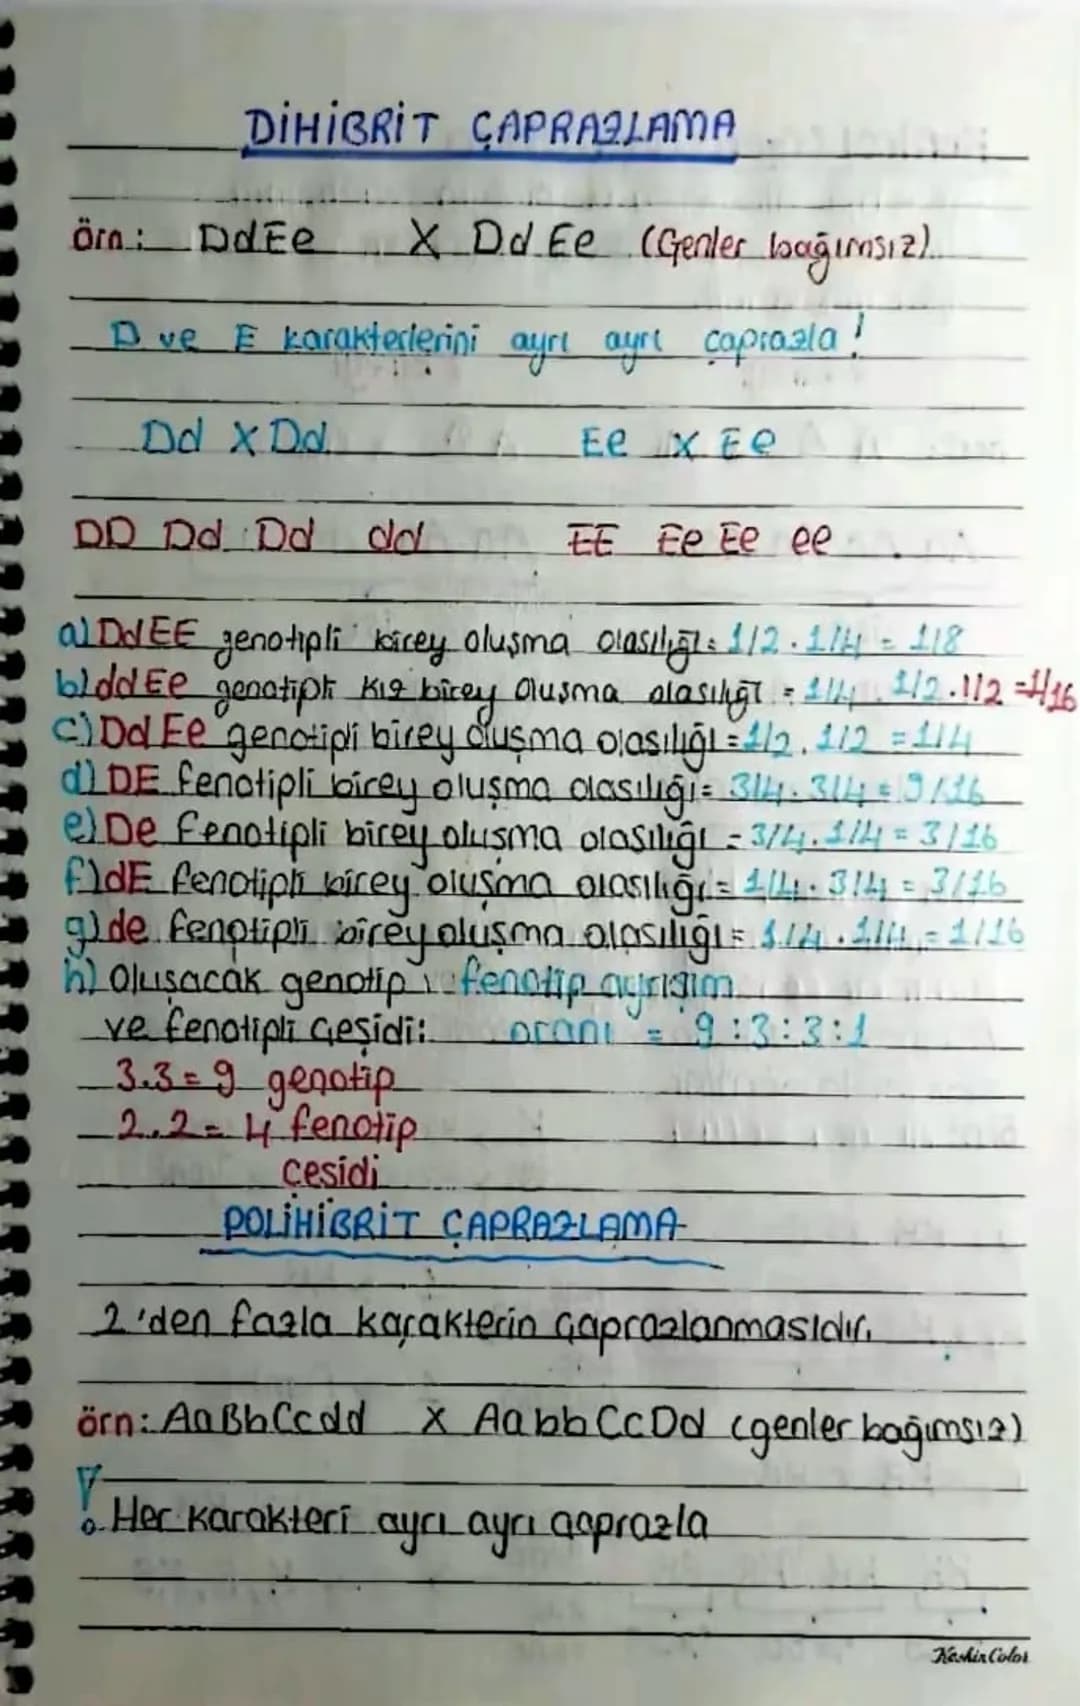 DİHİBRİT ÇAPRAZLAMA
örn: DdEe X DdEe (Genler bağımsız)
D ve E karakterlerini ayrı ayrı çaprazla!
Dd X Dd Ee X Ee
DD Dd Dd dd EE Ee Ee ee
a) DdEE genotipli birey oluşma olasılığı = 1/2 . 1/4 = 1/8
b) ddEe genotipli kız birey oluşma olasılığı = 1/4 . 1/2 . 1/2 = 1/16
c) DdEe genotipli birey oluşma olasılığı = 1/2 . 1/2 = 1/4
d) DE fenotipli birey oluşma olasılığı = 3/4 . 3/4 = 9/16
e) De fenotipli birey oluşma olasılığı = 3/4 . 1/4 = 3/16
f) dE fenotipli birey oluşma olasılığı = 1/4 . 3/4 = 3/16
g) de fenotipli birey oluşma olasılığı = 1/4 . 1/4 = 1/16
h) Oluşacak genotip fenotip ayrışım
ve fenotipli çeşidi: oranı = 9:3:3:1
3.3 = 9 genotip
2.2 = 4 fenotip
çeşidi
POLİHİBRİT ÇAPRAZLAMA
2'den fazla karakterin çaprazlanmasıdır.
örn: AaBbCcdd X AabbCcDd (genler bağımsız)
! Her karakteri ayrı ayrı çaprazla
KeskinColor